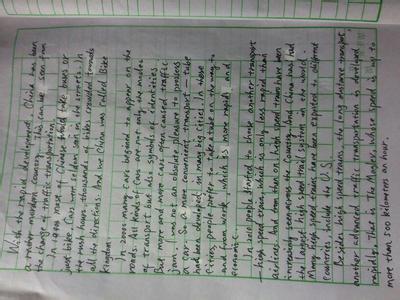 With the rapid development, China has been
a rather modern country. This can be seen from
the change of traffic transportation.
In 1980s most of Chinese would take buses or
just bike. Cars were seldom seen in the streets. In
the rush hours, thousands of bikes crowded towards
all the directions. And the China was called Bike
Kingdom.
In 2000s many cars begined to appear on the
roads. All kinds of cars are not only the modes
of transport but also symbols of identities.
But more and more cars often caused traffic
jam. It is not an absolute pleasure to possess
a car. So a more convenient transport — tube
had been developed in many big cities. In these
cities, people prefer to take a tube on the way to
and from work, which is more rapid and
economic.
In 2010 people started to choose another transport
— high speed train, which is only less rapid than
airlines. And from then on, high speed trains have been
increasingly seen across the country. And China has had
the largest high speed rail system in the world.
Many high speed trains have been exported to different
countries include the U.S.
Besides high speed trains, the long distance transport,
another advanced traffic transportation is developed
rapidly. That is the Maglev, whose speed is up to
more than 500 kilometers an hour.